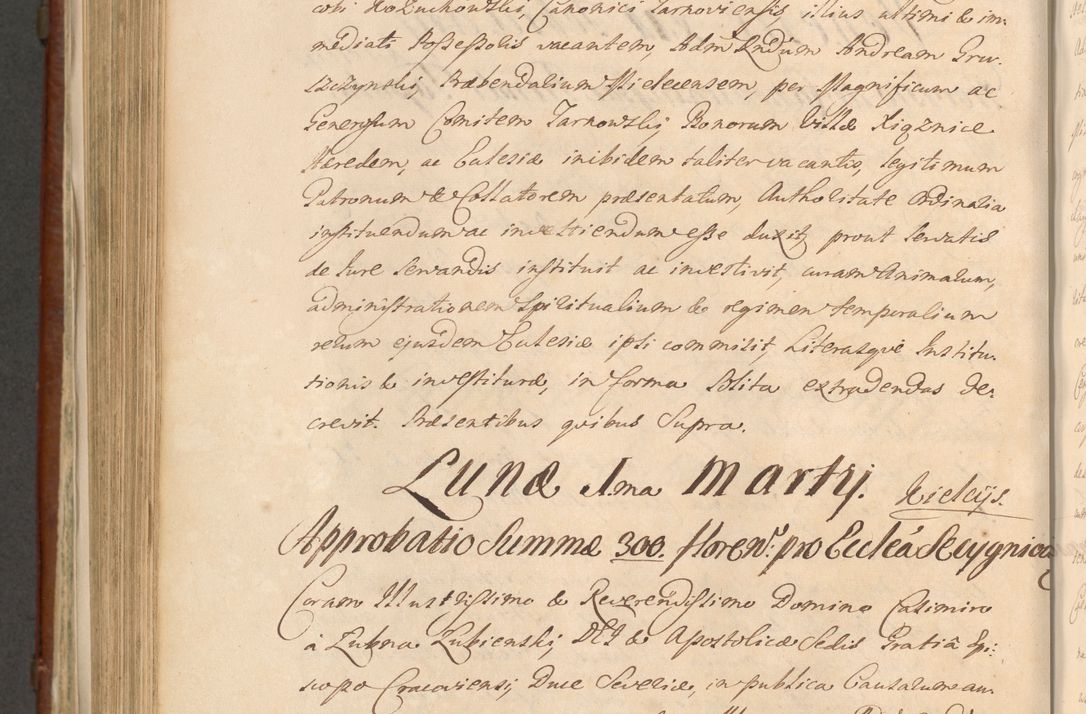 cobi Rożuchowskij, Canonici Tarnoviensis, illius ultimi & im-
mediati Possessoris vacantem, Adm Rndum Andream Gru-
szczynskij, Præbendalium Mielecensem, per Magnificum ac
Generosum Comitem Tarnowskij Bonorum Villæ Xiąznice
Hæredem, ac Ecclesiæ inibidem taliter vacantis, legitimum
Patronum & Collatorem præsentatum, Authoritate Ordinaria
instituendum ac investiendum esse duxit, prout servatis
de Jure servandis instituit ac investivit, curam Animarum,
administrationem Spiritualium & regimen temporalium
rerum ejusdem Ecclesiæ ipsi commisit, Literasque Institu-
tionis & investituræ, in forma solita extradendas de-
crevit. Præsentibus quibus Supra.
Lunæ 1ma Martij. Kielcijs.
Approbatio Summæ 300. floren: pro Eccleâ Skrzygnica
Coram Illustrissimo & Reverendissimo Domino Casimiro
à Lubna Lubienskij, DEI & Apostolicæ Sedis Gratiâ Epi-
scopo Cracoviensi, Duce Severiæ, in publica Causarum au-